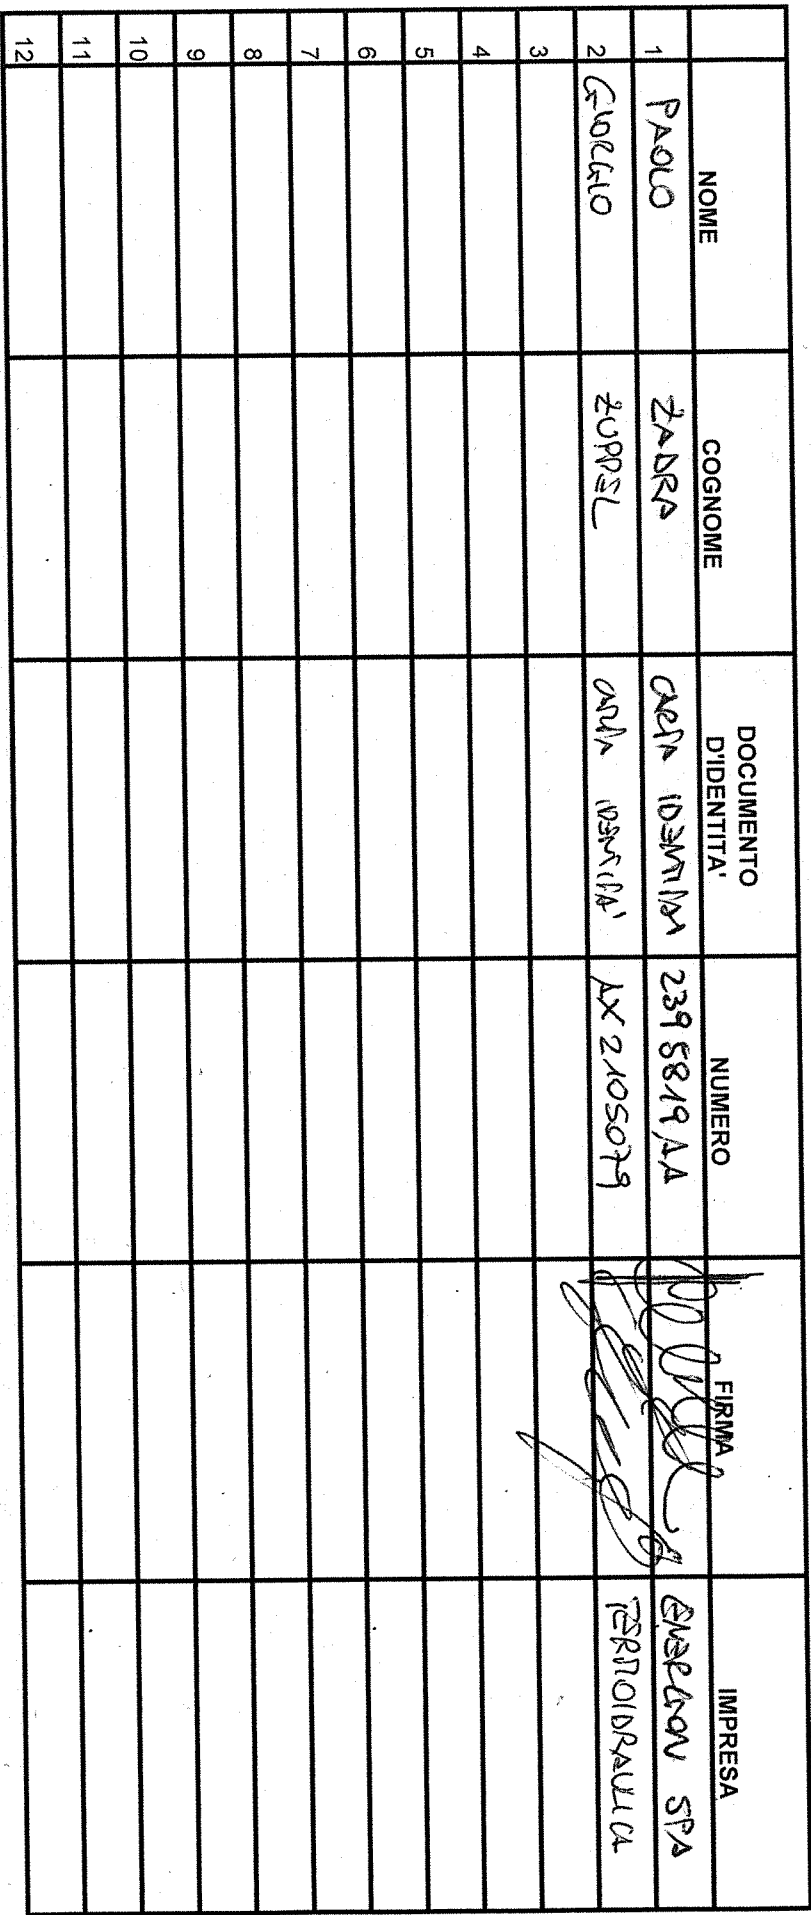 NOME COGNOME DOCUMENTO D'IDENTITA' NUMERO FIRMA IMPRESA
1 PAOLO ZADRA CARTA IDENTITA' 2395819AA SPA
2 GIORGIO ZUPPEL CARTA IDENTITA' AX2105079 TERMOIDRAULICA
3
4
5
6
7
8
9
10
11
12